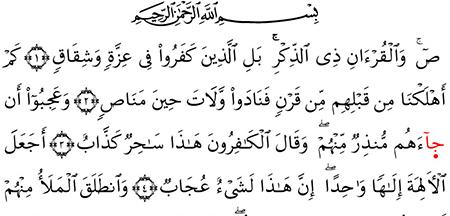 بِسْمِ ٱللَّهِ ٱلرَّحْمَٰنِ ٱلرَّحِيمِ
صٓ ۚ وَٱلْقُرْءَانِ ذِى ٱلذِّكْرِ ۚ بَلِ ٱلَّذِينَ كَفَرُوا۟ فِى عِزَّةٍ وَشِقَاقٍ ﴿١﴾ كَمْ
أَهْلَكْنَا مِن قَبْلِهِم مِّن قَرْنٍ فَنَادَوا۟ وَّلَاتَ حِينَ مَنَاصٍ ﴿٢﴾ وَعَجِبُوٓا۟ أَن
جَآءَهُم مُّنذِرٌ مِّنْهُمْ ۖ وَقَالَ ٱلْكَٰفِرُونَ هَٰذَا سَٰحِرٌ كَذَّابٌ ﴿٣﴾ أَجَعَلَ
ٱلْأَلِهَةَ إِلَٰهًا وَٰحِدًا ۖ إِنَّ هَٰذَا لَشَىْءٌ عُجَابٌ ﴿٤﴾ وَٱنطَلَقَ ٱلْمَلَأُ مِنْهُمْ